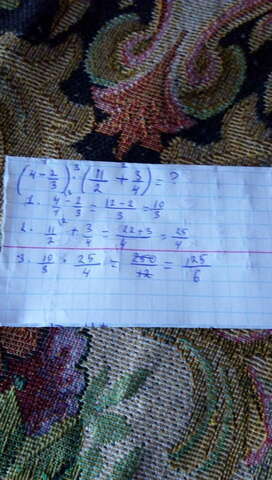 (4 - 2/3) · (11/2 + 3/4) = ?
1. 4/1 - 2/3 = 12-2/3 = 10/3
2. 11/2 + 3/4 = 22+3/4 = 25/4
3. 10/3 · 25/4 = 250/12 = 125/6